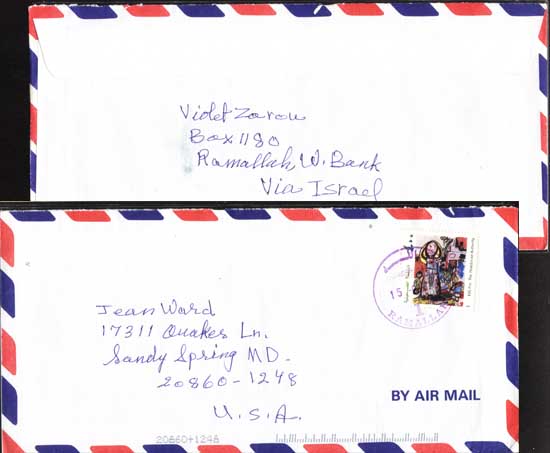 Violet Zarou
Box 1180
Ramallah, W. Bank
Via Israel
15
1
RAMALLAH
Jean Ward
17311 Quaker Ln.
Sandy Spring MD.
20860-1248
U.S.A.
BY AIR MAIL
20860+1248